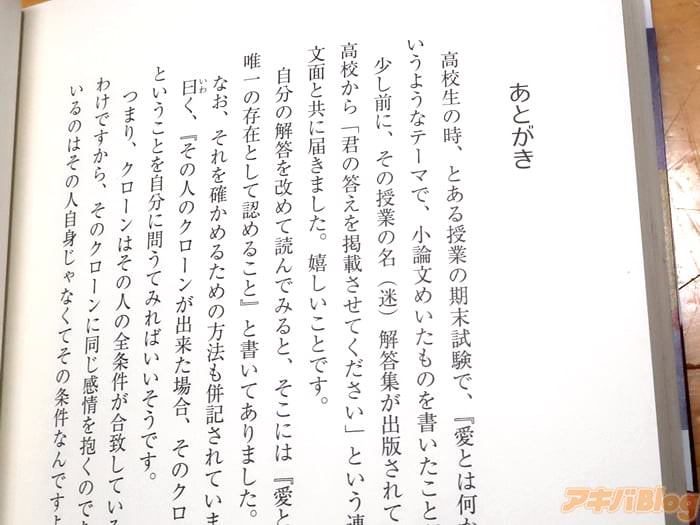 あとがき
高校生の時、とある授業の期末試験で、『愛とは何か
いうようなテーマで、小論文めいたものを書いたこと
少し前に、その授業の名（迷）解答集が出版されて
高校から「君の答えを掲載させてください」という連
文面と共に届きました。嬉しいことです。
自分の解答を改めて読んでみると、そこには『愛と
唯一の存在として認めること』と書いてありました。
なお、それを確かめるための方法も併記されていま
曰く、『その人のクローンが出来た場合、そのクロ
いわ
ということを自分に問うてみればいいそうです。
つまり、クローンはその人の全条件が合致している
わけですから、そのクローンに同じ感情を抱くので
いるのはその人自身じゃなくてその条件なんですよ
アキバBlog